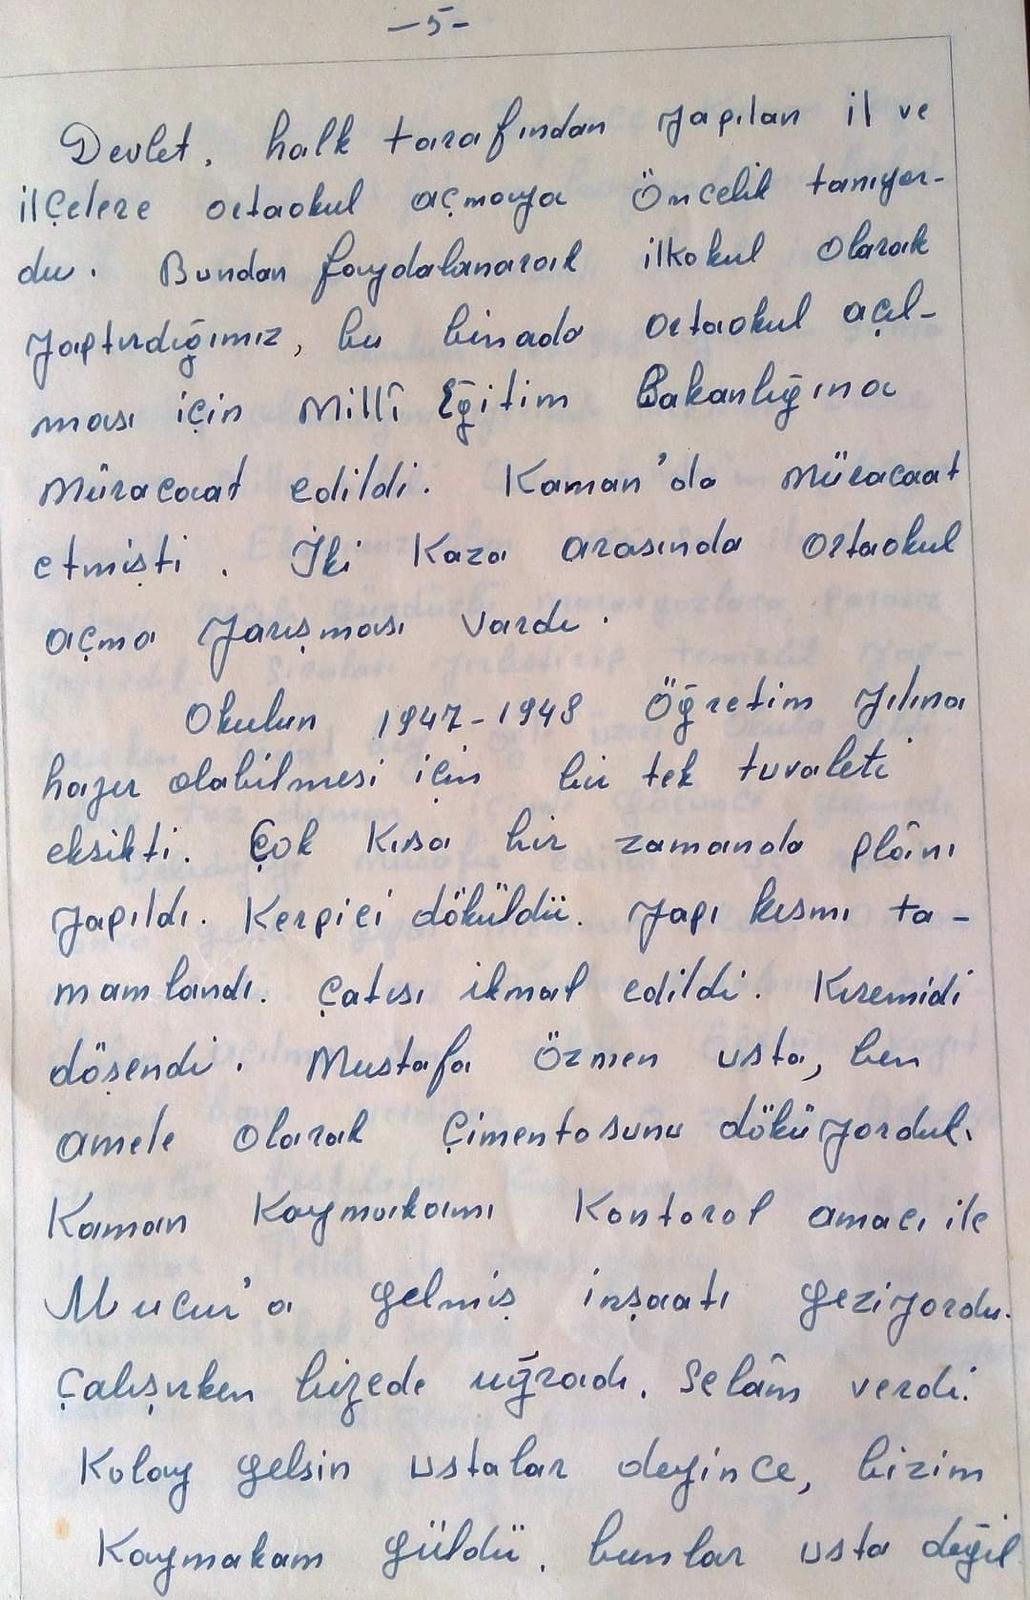 -5-
Devlet, halk tarafından yapılan il ve
ilçelere ortaokul açmaya öncelik tanıyor-
du. Bundan faydalanarak ilkokul olarak
yaptırdığımız, bu binada ortaokul açıl-
ması için Millî Eğitim Bakanlığına
müracaat edildi. Kaman'da müracaat
etmişti. İki Kaza arasında ortaokul
açma yarışması vardı.
Okulun 1947-1948 Öğretim yılına
hazır olabilmesi için bir tek tuvaleti
eksikti. Çok kısa bir zamanda plânı
yapıldı. Kerpici döküldü. yapı kısmı ta-
mamlandı. Çatısı ikmal edildi. Kiremidi
döşendi. Mustafa Özmen usta, ben
amele olarak çimentosunu döküyorduk.
Kaman Kaymakamı Kontorol amacı ile
Mucur'a gelmiş inşaatı geziyordu.
Çalışırken bizede uğradı. Selâm verdi.
Kolay gelsin ustalar deyince, bizim
Kaymakam güldü, bunlar usta değil